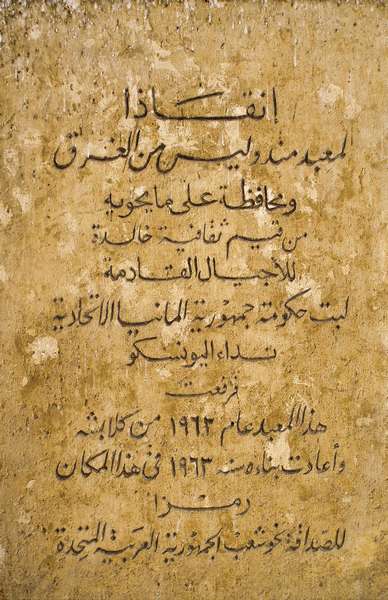 إنقاذا
لمعبد مندوليس من الغرق
ومحافظة على ما يحويه
من قيم ثقافية خالدة
للأجيال القادمة
لبت حكومة جمهورية المانيا الاتحادية
نداء اليونسكو
فرفعت
هذا المعبد عام ١٩٦٢ من كلابشه
وأعادت بناءه سنه ١٩٦٣ في هذا المكان
رمزا
للصداقة نحو شعب الجمهورية العربية المتحدة